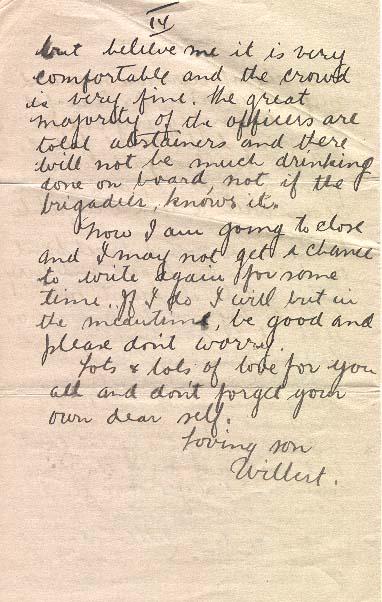 14
but believe me it is very
comfortable and the crowd
is very fine. The great
majority of the officers are
total abstainers and there
will not be much drinking
done on board, not if the
brigadier, knows it.
Now I am going to close
and I may not get a chance
to write again for some
time. If I do I will but in
the meantime, be good and
please don't worry.
Lots & lots of love for you
all and don't forget your
own dear self.
Loving son
Willert.